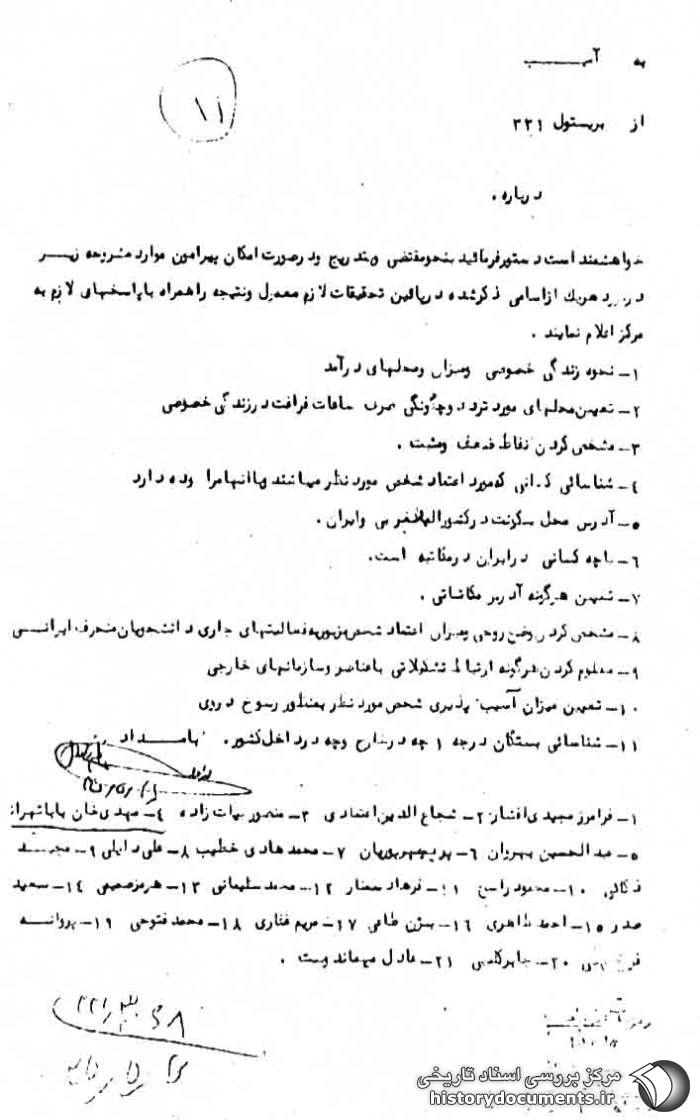 ۱۱
به آسیب
از بریستول ۳۳۱
درباره .
خواهشمند است دستور فرمائید بنحو مقتضی وبتدریج ودرصورت امکان پیرامون موارد مشروحه زیر
درمورد هریك ازاسامی ذکرشده درپائین تحقیقات لازم معمول ونتیجه راهمراه باپاسخهای لازم به
مرکز اعلام نمایند .
۱ـ نحوه زندگی خصوصی ومیزان ومحلهای درآمد
۲ـ تعیین محلهای مورد تردد وچگونگی صرف ساعات فراغت درزندگی خصوصی
۳ـ مشخص کردن نقاط ضعف ومثبت .
۴ـ شناسائی کسانی که مورد اعتماد شخص مورد نظر میباشند وباآنها مراوده دارد
۵ـ آدرس محل سکونت درکشور وایران .
۶ـ باچه کسانی درایران درمکاتبه است.
۷ـ تعیین هرگونه آدرس مکاتباتی .
۸ـ مشخص کردن وضع روحی ومیزان اعتماد شخص مزبور به فعالیتهای جاری دانشجویان منحرف ایرانی
۹ـ معلوم کردن هرگونه ارتباط تشکیلاتی باعناصر وسازمانهای خارجی
۱۰ـ تعیین میزان آسیب پذیری شخص مورد نظر بمنظور رسوخ دروی
۱۱ـ شناسائی بستگان درجه ۱ چه درخارج وچه درداخل کشور. بامداد
۱ـ فرامرز مجیدی افشار ۲ـ شجاع الدین اعتمادی ۳ـ منصور بیات زاده ۴ـ مهدی خان باباتهرانی
۵ـ عبدالحسین بهروان ۶ـ پریچهر پوریان ۷ـ محمدهادی خطیب ۸ـ علی ۹ـ مجید
۱۰ـ محمود راسخ ۱۱ـ فرهاد سمنار ۱۲ـ محمد سلیمانی ۱۳ـ هرمز صمیمی ۱۴ـ سعید
صدر ۱۵ـ احمد طاهری ۱۶ـ بیژن ۱۷ـ مریم غفاری ۱۸ـ محمد فتوحی ۱۹ـ پروانه
۲۰ـ جابر کلیبی ۲۱ـ عادل میهماندوست .
مرکز بررسی اسناد تاریخی
historydocuments.ir